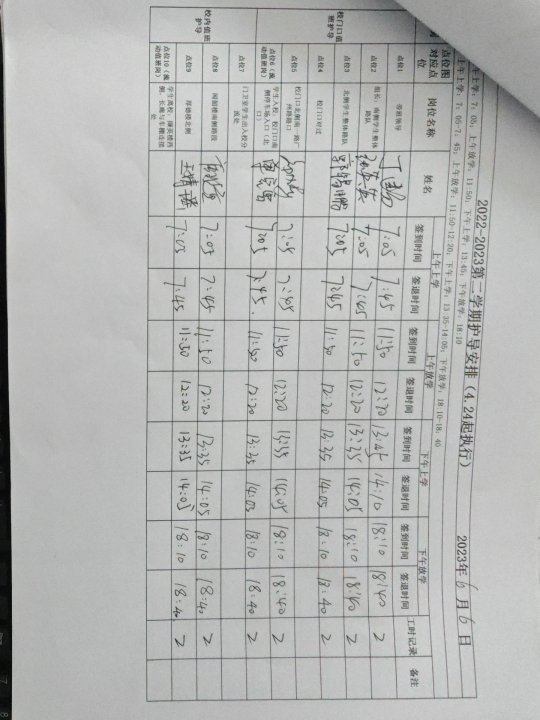 2022-2023第二学期护导安排（4.24起执行） 2023年 6 月 6 日
上午上学：7：05；上午放学：11:50；下午上学：13:45；下午放学：18:10
上午上学：7：05-7：45；上午放学：11:50-12:20；下午上学：13:35-14:05；下午放学：18:10-18：40
点位图对应点位 岗位名称 姓名 上午上学 上午放学 下午上学 下午放学 工时记录 备注
签到时间 签退时间 签到时间 签退时间 签到时间 签退时间 签到时间 签退时间
点位1 带班领导 7:05 7:45 11:50 12:20 13:45 14:10 18:10 18:40 2
校门口值班护导
点位2 组长：南侧学生整体路队 7:05 7:45 11:50 12:20 13:35 14:05 18:10 18:40 2
点位3 北侧学生整体路队 郭锦鹏 7:05 7:45 11:50 12:20 13:35 14:05 18:10 18:40 2
点位4 校门口对过
点位5 校门口北侧南一路广州路路口 7:05 7:45 11:50 12:20 13:35 14:05 18:10 18:40 2
点位6（流动值班岗） 学生入校，校门口南侧停车场入口（北口） 7:05 7:45 11:50 12:20 13:35 14:05 18:10 18:40 2
校内值班护导
点位7 门卫室学生出入校分流处
点位8 闻韶楼南侧路段 7:05 7:45 11:50 12:20 13:35 14:05 18:10 18:40 2
点位9 厚德楼北侧 7:05 7:45 11:50 12:20 13:35 14:05 18:10 18:40 2
点位10（流动值班岗）